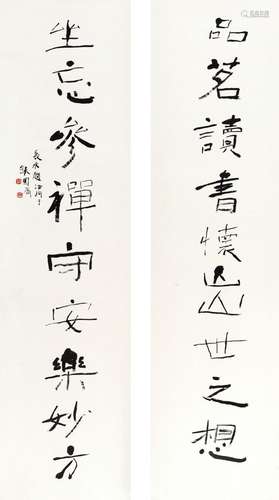 品茗讀書懷出世之想
坐忘參禪守安樂妙方